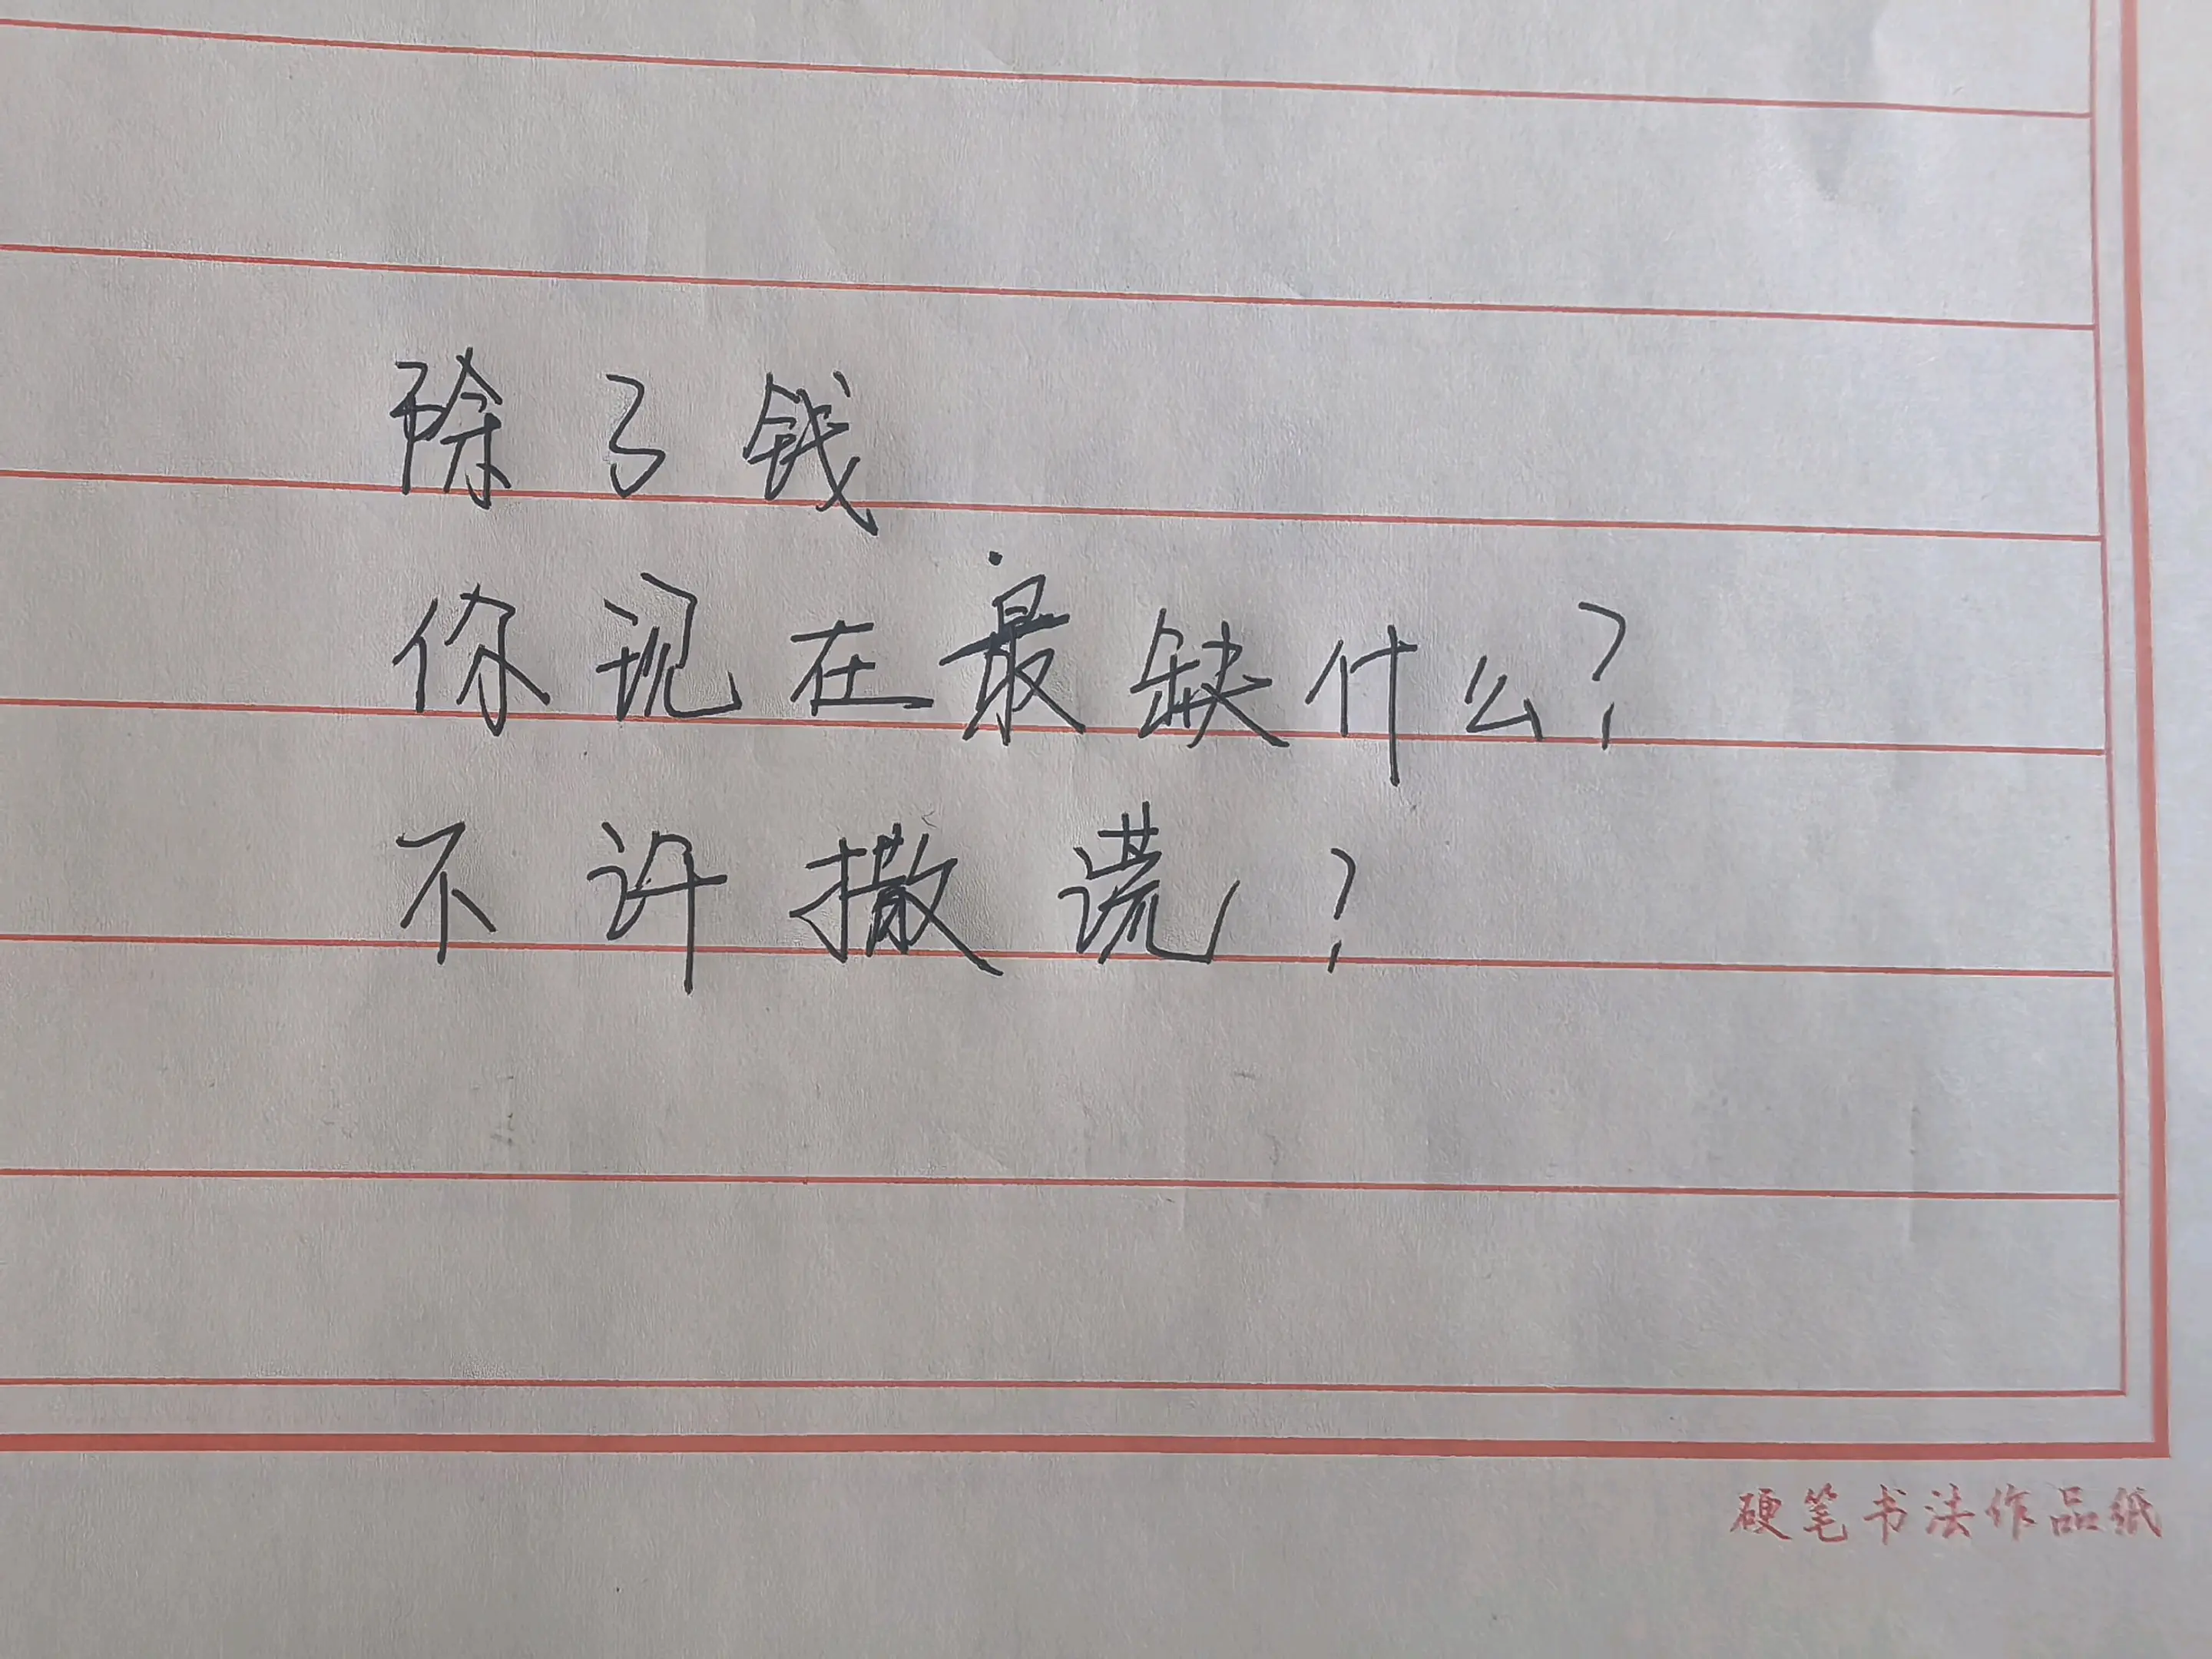 除了钱
你现在最缺什么?
不许撒谎?
硬笔书法作品纸